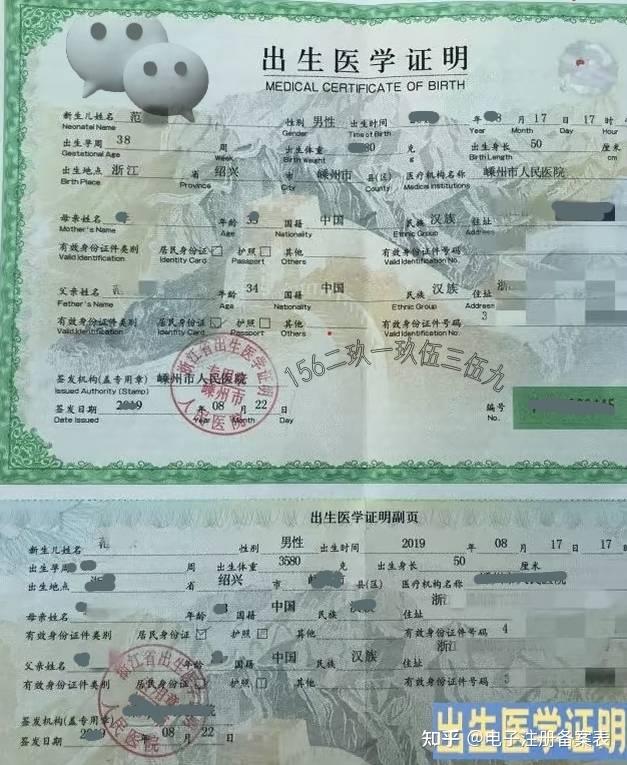 出生医学证明
MEDICAL CERTIFICATE OF BIRTH
新生儿姓名 范 性别 男性 出生时间 8 月 17 日 17 时
Neonatal Name Gender Time of Birth Year Month Day Hour
出生孕周 38 周 出生体重 80 克 出生身长 50 厘米
Gestational Age Week Birth Weight g Birth Length cm
出生地点 浙江 省 绍兴 市 嵊州市 县(区) 医疗机构名称 嵊州市人民医院
Birth Place Province City County Medical Institutions
母亲姓名 年龄 国籍 中国 民族 汉族 住址
Mother's Name Age Nationality Ethnic Group Address
有效身份证件类别 居民身份证 护照 其他 有效身份证件号码
Valid Identification Identity Card Passport Others Valid Identification No.
父亲姓名 年龄 34 国籍 中国 民族 汉族 住址 浙
Father's Name Age Nationality Ethnic Group Address
有效身份证件类别 居民身份证 护照 其他 有效身份证件号码 3
Valid Identification Identity Card Passport Others Valid Identification No.
浙江省出生医学证明
专用章
嵊州市
人民医院
156二玖一玖伍三伍九
签发机构(盖专用章) 嵊州市人民医院
Issued Authority (Stamp)
签发日期 2019 年 08 月 22 日 编号
Date Issued Year Month Day No.
出生医学证明副页
新生儿姓名 范 性别 男性 出生时间 2019 年 08 月 17 日 17
出生孕周 周 出生体重 3580 克 出生身长 50 厘米
出生地点 绍兴 市 县(区) 医疗机构名称
母亲姓名 年龄 国籍 中国 民族 住址 浙
有效身份证件类别 居民身份证 护照 其他 有效身份证件号码 4
父亲姓名 年龄 国籍 中国 民族 汉族 住址 浙江
有效身份证件类别 居民身份证 护照 其他 有效身份证件号码 3
签发机构(盖专用章)
签发日期 年 08 月 22 日
人民医院
出生医学证明
知乎 @电子注册备案表